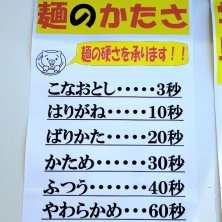 麺のかたさ
麺の硬さを承ります!!
こなおとし・・・・・3秒
はりがね・・・・・10秒
ばりかた・・・・・20秒
かため・・・・・・30秒
ふつう・・・・・・40秒
やわらかめ・・・・60秒